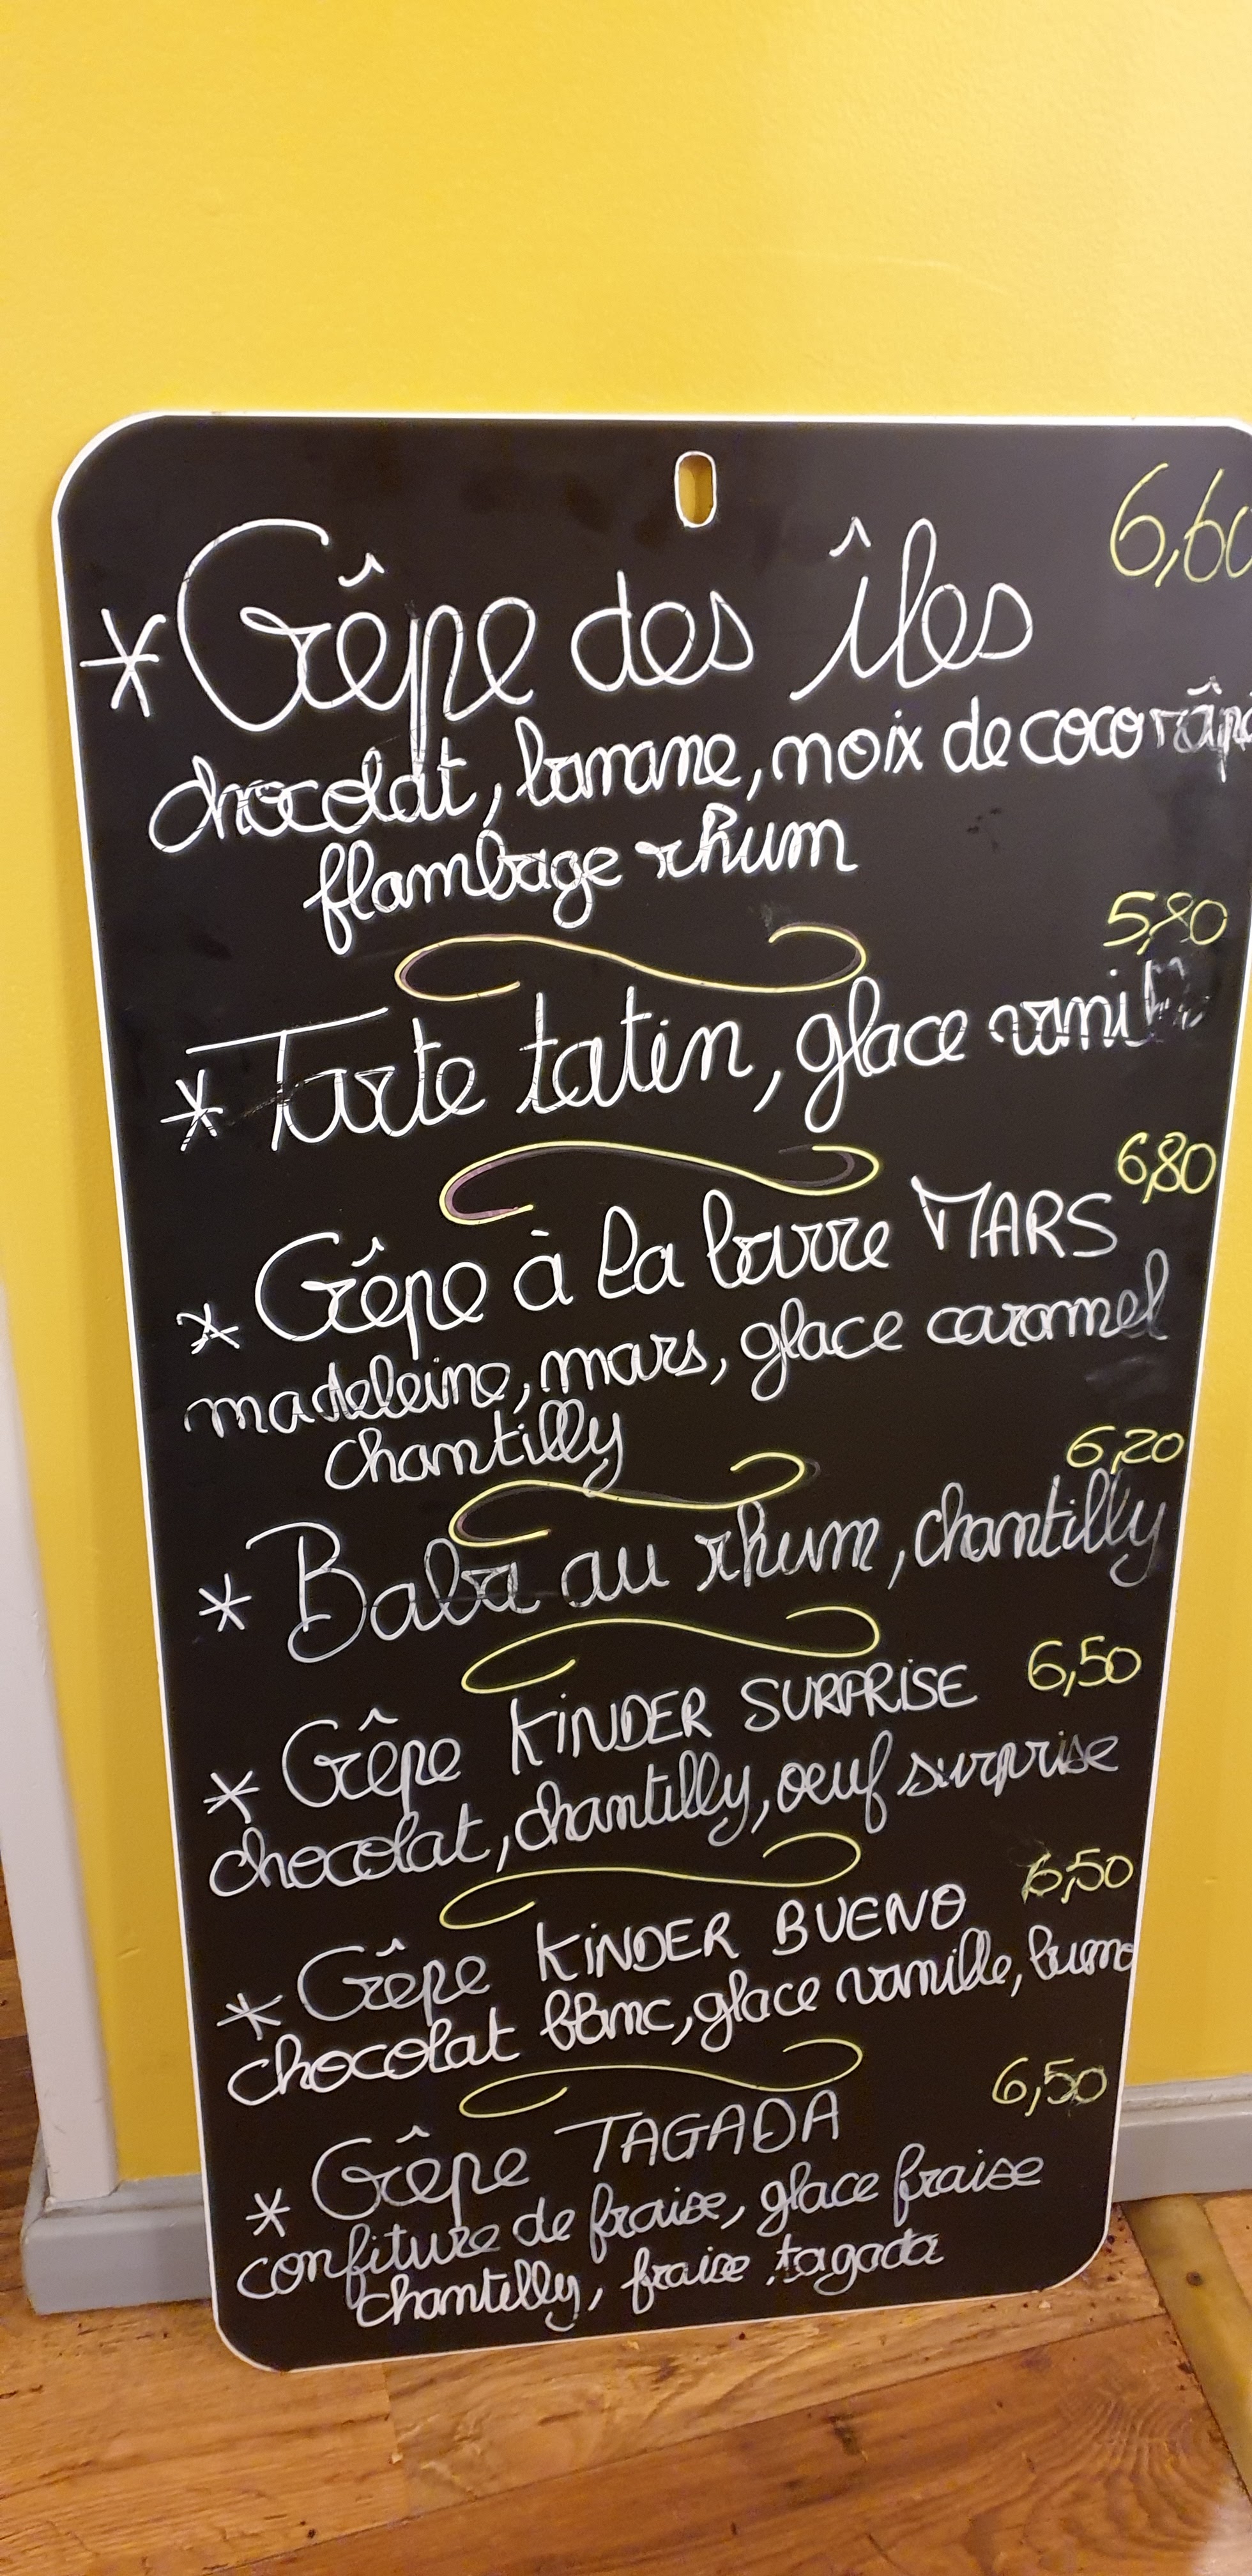 6,60
* Crêpe des îles
chocolat, banane, noix de coco
flambage rhum
5,80
* Tarte tatin, glace
6,80
* Crêpe à la barre MARS
madeleine, mars, glace caramel
chantilly
6,20
* Baba au rhum, chantilly
* Crêpe KiNDER SURPRiSE 6,50
chocolat, chantilly, oeuf surprise
6,50
* Crêpe KiNDER BUENO
chocolat blanc, glace vanille, bueno
6,50
* Crêpe TAGADA
confiture de fraise, glace fraise
chantilly, fraise tagada